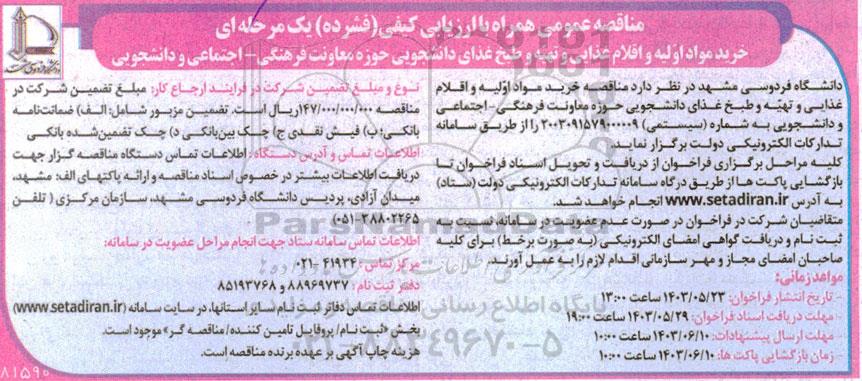 مناقصه عمومی همراه با ارزیابی کیفی (فشرده) یک مرحله ای
خرید مواد اولیه و اقلام غذایی و تهیه و طبخ غذای دانشجویی حوزه معاونت فرهنگی - اجتماعی و دانشجویی
دانشگاه فردوسی مشهد در نظر دارد مناقصه خرید مواد اوّلیه و اقلام
غذایی و تهیّه و طبخ غذای دانشجویی حوزه معاونت فرهنگی - اجتماعی
و دانشجویی به شماره (سیستمی) ۲۰۰۳۰۹۱۵۷۹۰۰۰۰۰۹ را از طریق سامانه
تدارکات الکترونیکی دولت برگزار نماید.
کلیه مراحل برگزاری فراخوان از دریافت و تحویل اسناد فراخوان تا
بازگشایی پاکت ها از طریق درگاه سامانه تدارکات الکترونیکی دولت (ستاد)
به آدرس www.setadiran.ir انجام خواهد شد.
متقاضیان شرکت در فراخوان در صورت عدم عضویت در سامانه، نسبت به
ثبت نام و دریافت گواهی امضای الکترونیکی (به صورت برخط) برای کلیه
صاحبان امضای مجاز و مهر سازمانی اقدام لازم را به عمل آورند.
مواعد زمانی:
- تاریخ انتشار فراخوان: ۱۴۰۳/۰۵/۲۳ ساعت ۱۳:۰۰
- مهلت دریافت اسناد فراخوان: ۱۴۰۳/۰۵/۲۹ ساعت ۱۹:۰۰
- مهلت ارسال پیشنهادات: ۱۴۰۳/۰۶/۱۰ ساعت ۱۰:۰۰
- زمان بازگشایی پاکت ها: ۱۴۰۳/۰۶/۱۰ ساعت ۱۰:۰۰
نوع و مبلغ تضمین شرکت در فرایند ارجاع کار: مبلغ تضمین شرکت در
مناقصه ۱۴۷/۰۰۰/۰۰۰/۰۰۰ ریال است. تضمین مزبور شامل: الف) ضمانت‌نامه
بانکی؛ ب) فیش نقدی ج) چک بین‌بانکی د) چک تضمین‌شده بانکی
اطلاعات تماس و آدرس دستگاه: اطلاعات تماس دستگاه مناقصه گزار جهت
دریافت اطلاعات بیشتر در خصوص اسناد مناقصه و ارائه پاکتهای الف: مشهد،
میدان آزادی، پردیس دانشگاه فردوسی مشهد، سازمان مرکزی ( تلفن
۳۸۸۰۲۲۶۵-۰۵۱)
اطلاعات تماس سامانه ستاد جهت انجام مراحل عضویت در سامانه:
مرکز تماس: ۴۱۹۳۴ -۰۲۱
دفتر ثبت نام: ۸۸۹۶۹۷۳۷ و ۸۵۱۹۳۷۶۸
اطلاعات تماس دفاتر ثبت نام سایر استانها، در سایت سامانه (www.setadiran.ir)
بخش «ثبت نام/ پروفایل تامین کننده/ مناقصه گر» موجود است.
هزینه چاپ آگهی بر عهده برنده مناقصه است.
ParsNamadData
پایگاه اطلاع رسانی
۰۲۱-۸۸۳۴۹۶۷۰-۵
۸۱۵۹۰